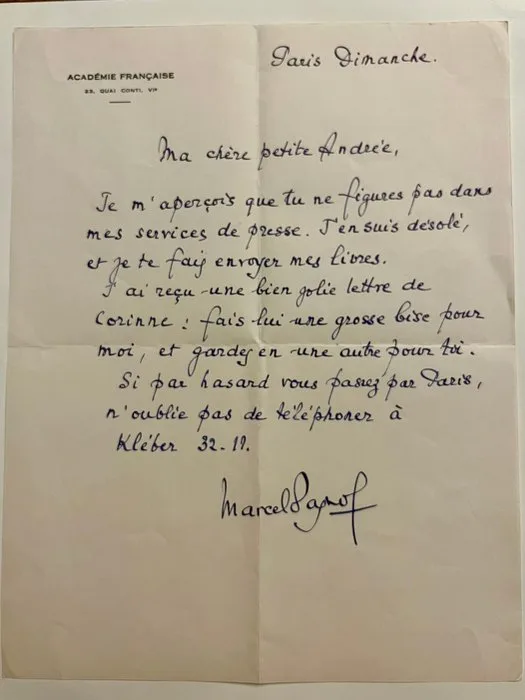 Paris Dimanche.
ACADÉMIE FRANÇAISE
23, QUAI CONTI, VIe
Ma chère petite Andrée,
Je m'aperçois que tu ne figures pas dans
mes services de presse. J'en suis désolé,
et je te fais envoyer mes livres.
J'ai reçu une bien jolie lettre de
Corinne : fais-lui une grosse bise pour
moi, et gardes en une autre pour toi.
Si par hasard vous passez par Paris,
n'oublie pas de téléphoner à
Kléber 32-11.
Marcel Pagnol